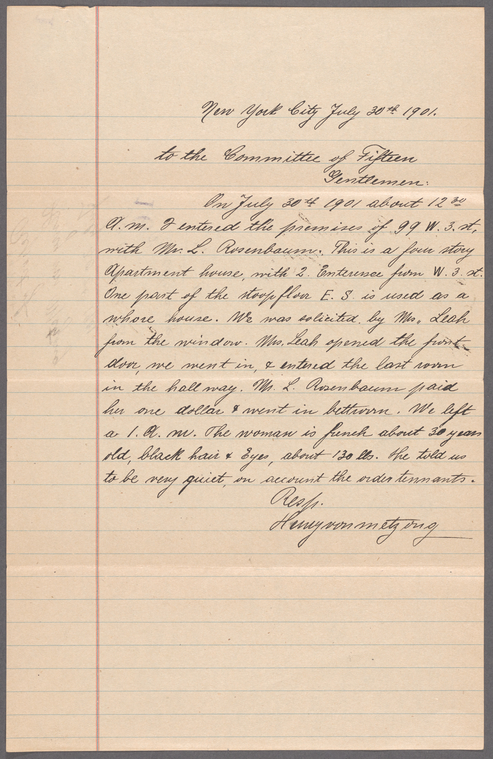 New York City July 30th 1901.
to the Committee of Fifteen
Gentlemen:
On July 30th 1901 about 12 30
A. m. I entered the premises of 99 W. 3. st,
with Mr. L. Rosenbaum. This is a four story
Apartment house, with 2 Enterence from W. 3. st.
One part of the stoopfloor E. S. is used as a
whore house. We was solicited by Mrs. Leah
from the window. Mrs. Leah opened the front
door, we went in, & entered the last room
in the hall way. Mr. L. Rosenbaum paid
her one dollar & went in bettroom. We left
a 1. A. m. The woman is french about 30 years
old, black hair & Eyes, about 130 lbs. She told us
to be very quiet, on account the order tennants.
Resp.